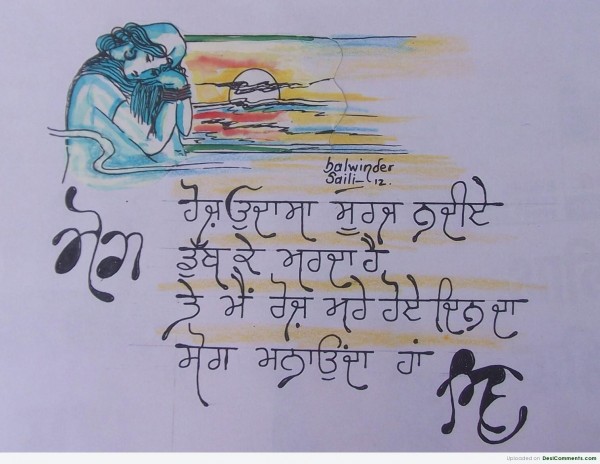 balwinder
Saili-12.
ਸੋਗ
ਰੋਜ਼ ਉਦਾਸਾ ਸੂਰਜ ਨਦੀਏ
ਡੁੱਬ ਕੇ ਮਰਦਾ ਹੈ
ਤੇ ਮੈਂ ਰੋਜ਼ ਮਰੇ ਹੋਏ ਦਿਨ ਦਾ
ਸੋਗ ਮਨਾਉਂਦਾ ਹਾਂ
Uploaded on DesiComments.com